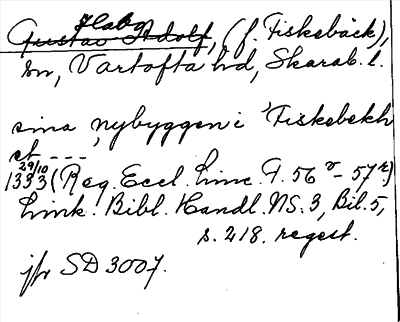 Habo
Gustav Adolf, (f. Fiskebäck),
sn, Vartofta hd, Skarab. l.
sina nybyggen i Fiskebekh
et ---
29/10
1333 (Reg. Eccl. Linc. F. 56 v - 57 r)
Link. Bibl. Handl. NS. 3, Bil. 5,
s. 218. regest.
jfr SD 3007.